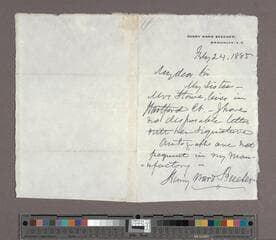 HENRY WARD BEECHER,
BROOKLYN, N.Y.
Feby 24, 1885
My dear Sir
My Sister -
Mrs Stowe, lives in
Hartford Ct. I have
no disposable letter
with her signature
Autographs are not
frequent in my man-
ufactory -
Henry Ward Beecher